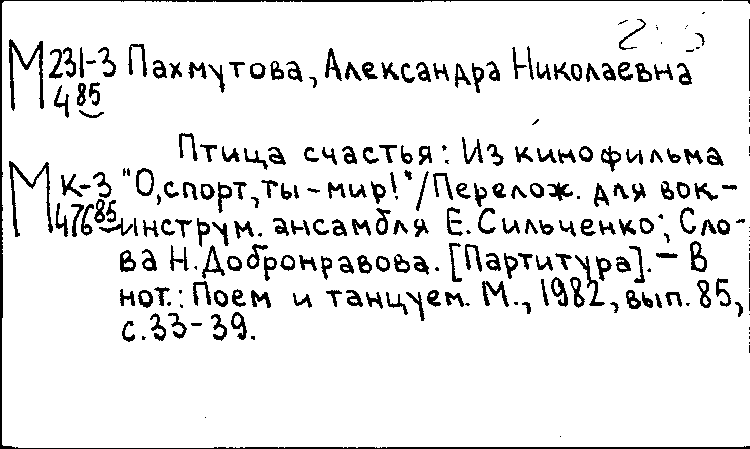 М 231-3 Пахмутова, Александра Николаевна
4 85
Птица счастья: Из кинофильма
М К-3 "О, спорт, ты - мир!" / Перелож. для вок-
476 85 инструм. ансамбля Е. Сильченко; Сло-
ва Н. Добронравова. [Партитура]. - В
нот.: Поем и танцуем. М., 1982, вып. 85,
с. 33-39.